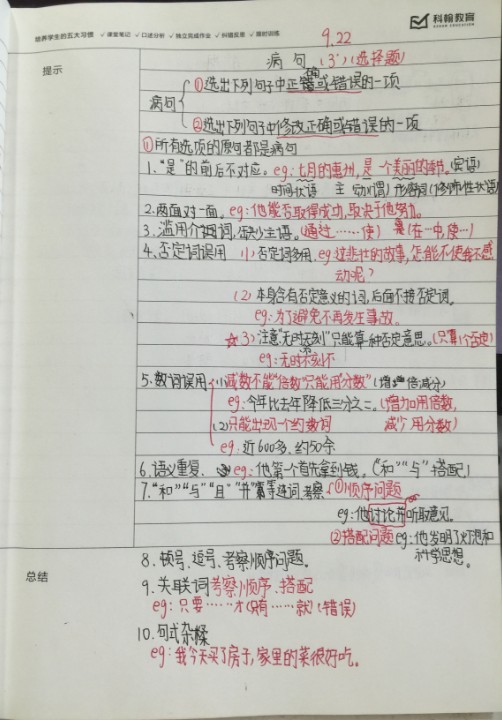 培养学生的五大习惯 ✓课堂笔记 ✓口述分析 ✓独立完成作业 ✓纠错反思 ✓限时训练
科翰教育
KEHAN EDUCATION
9.22
提示
病句 (3') (选择题)
病句
①选出下列句子中正确或错误的一项
②选出下列句子中修改正确或错误的一项
①所有选项的原句都是病句
1、"是"的前后不对应。eg:七月的惠州,是一个美丽的季节。(宾语)
时间状语 主 动(谓) 形容词(修饰性状语)
2.两面对一面。eg:他能否取得成功,取决于他努力。
3、滥用介词,缺少主语。(通过……使) (在…中,使…)
4、否定词误用 (1)否定词多用。eg:这悲壮的故事,怎能不使我不感
动呢?
(2)本身含有否定意义的词,后面不接否定词。
eg:为了避免不再发生事故。
☆(3)注意"无时无刻"只能算一种否定意思。(只算1个否定)
eg:无时不刻不
5、数词误用 (1)减数不能"倍数"只能用"分数"(增倍减分)
eg:今年比去年降低三分之二。(增加用倍数,
减少用分数)
(2)只能出现一个约数词
eg:近600多、约50余
6、语义重复. eg:他第一个首先拿到钱。("和""与"搭配)
7."和""与""且""并"等连词,考察 ①顺序问题
eg:他讨论并听取意见。
②搭配问题 eg:他发明了灯泡和
科学思想。
总结
8、顿号、逗号、考察顺序问题。
9、关联词考察顺序、搭配
eg:只要……才(只有……就)(错误)
10、句式杂糅
eg:我今天买了房子,家里的菜很好吃。